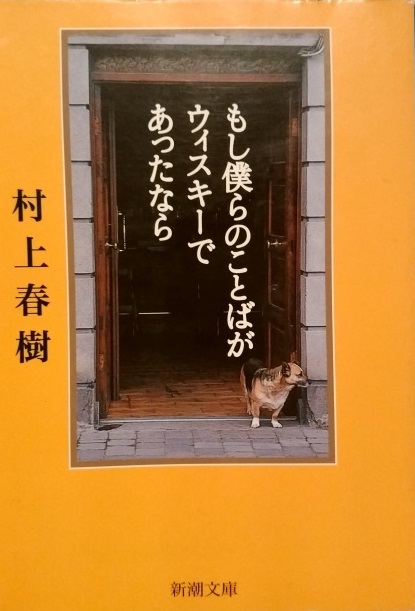 もし僕らのことばが
ウィスキーで
あったなら
村上春樹
新潮文庫